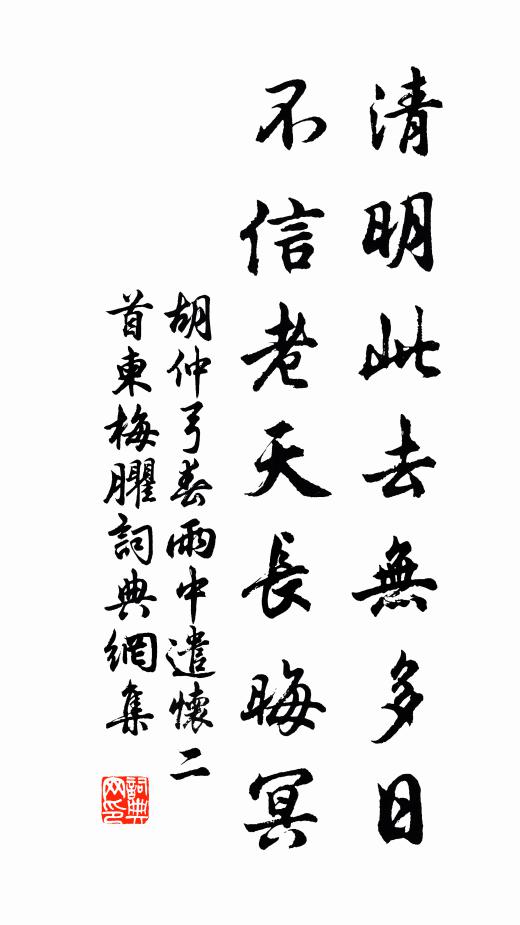 清明此去無多日
不信老天長晦冥
胡仲弓春雨中遣懷二
首東梅臞詞典網集
詞典網印